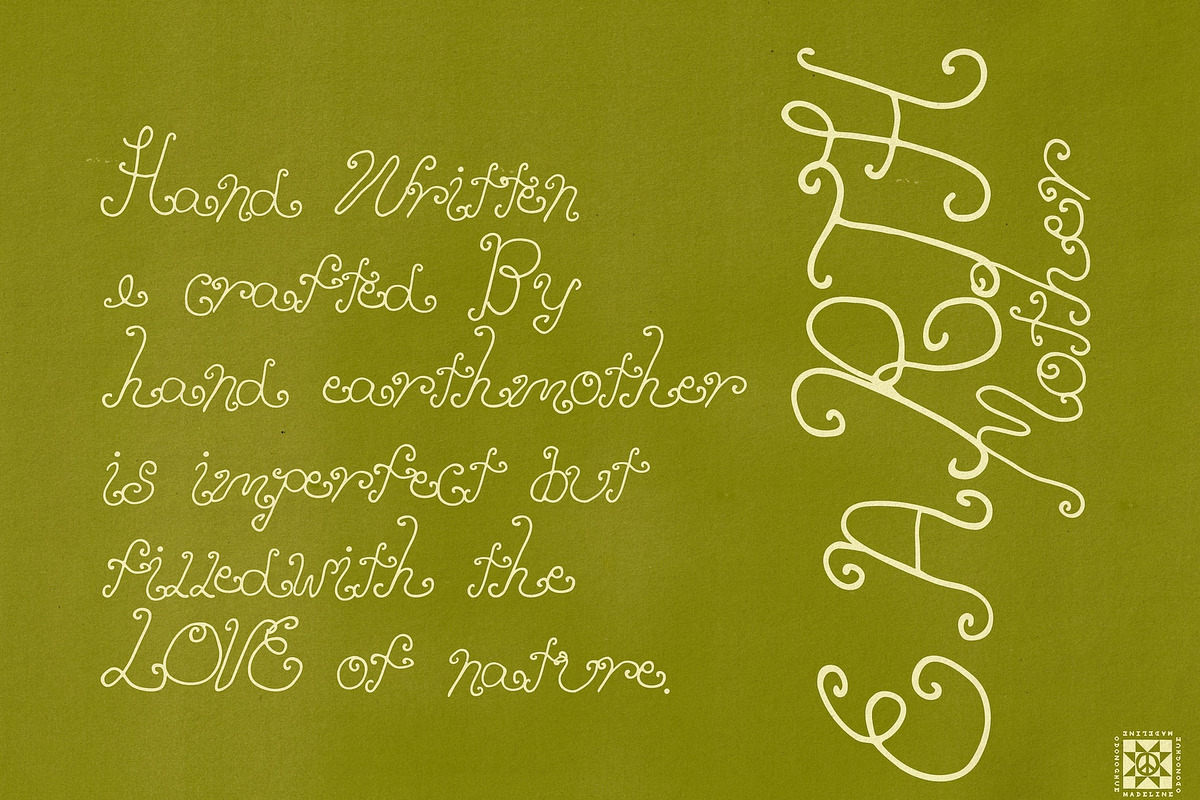 Hand Written
e crafted By
hand earthmother
is imperfect but
filledwith the
LOVE of nature.
EARTH
Mother
MADELINE
ODONOGHUE
MADELINE
ODONOGHUE